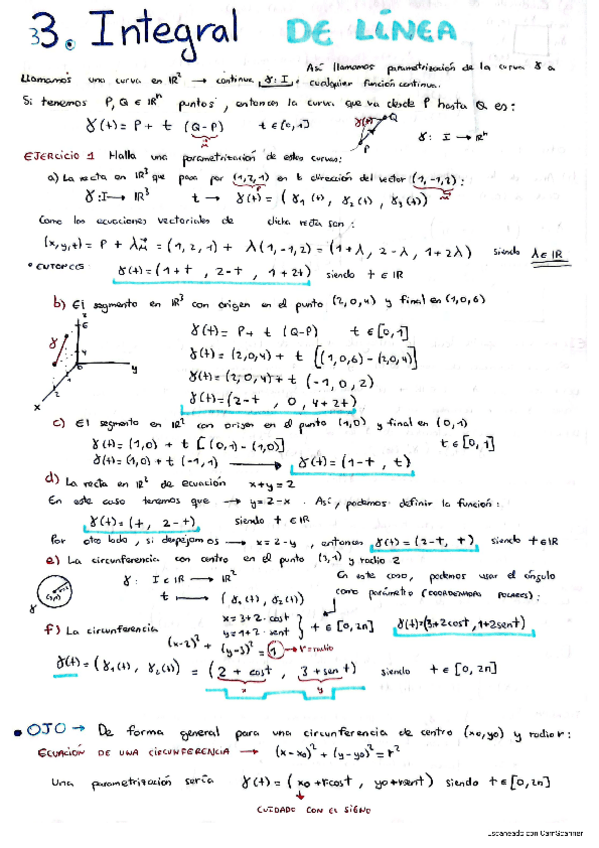 33. Integral DE LÍNEA
Así llamamos parametrización de la curva γ a
Llamamos una curva en ℝ² → continua, γ: I, cualquier función continua.
Si tenemos P, Q ∈ ℝⁿ puntos, entonces la curva que va desde P hasta Q es:
γ(t) = P + t (Q-P) t ∈ [0,1] γ(t) Q
P γ: I → ℝⁿ
EJERCICIO 1 Halla una parametrización de estas curvas:
a) La recta en ℝ³ que pasa por (1,2,1) en la dirección del vector (1,-1,2):
γ: I → ℝ³ t → γ(t) = (γ₁(t), γ₂(t), γ₃(t))
Como las ecuaciones vectoriales de dicha recta son:
(x,y,t) = P + λu = (1,2,1) + λ(1,-1,2) = (1+λ, 2-λ, 1+2λ) siendo λ ∈ ℝ
• ENTONCES γ(t) = (1+t, 2-t, 1+2t) siendo t ∈ ℝ
b) El segmento en ℝ³ con origen en el punto (2,0,4) y final en (1,0,6)
γ(t) = P + t (Q-P) t ∈ [0,1]
γ(t) = (2,0,4) + t [(1,0,6) - (2,0,4)]
γ(t) = (2,0,4) + t (-1,0,2)
γ(t) = (2-t, 0, 4+2t)
z 6 γ 4 y x
c) El segmento en ℝ² con origen en el punto (1,0) y final en (0,1)
γ(t) = (1,0) + t [(0,1) - (1,0)] t ∈ [0,1]
γ(t) = (1,0) + t (-1,1) → γ(t) = (1-t, t)
d) La recta en ℝ² de ecuación x+y=2
En este caso tenemos que → y=2-x. Así, podemos definir la función:
γ(t) = (t, 2-t) siendo t ∈ ℝ
Por otro lado, si despejamos → x=2-y, entonces γ(t) = (2-t, t) siendo t ∈ ℝ
e) La circunferencia con centro en el punto (3,1) y radio 2
γ: I ⊂ ℝ → ℝ² En este caso, podemos usar el ángulo
t → (γ₁(t), γ₂(t)) como parámetro (COORDENADAS POLARES):
γ
x = 3+2·cost
y = 1+2·sent } t ∈ [0,2π] γ(t)=(3+2cost, 1+2sent)
f) La circunferencia (x-2)² + (y-3)² = 1 → r=radio
γ(t) = (γ₁(t), γ₂(t)) = (2+cost, 3+sent) siendo t ∈ [0,2π]
x y
• OJO → De forma general para una circunferencia de centro (x₀,y₀) y radio r:
ECUACIÓN DE UNA CIRCUNFERENCIA → (x-x₀)² + (y-y₀)² = r²
Una parametrización sería γ(t) = (x₀+rcost, y₀+rsent) siendo t ∈ [0,2π]
CUIDADO CON EL SIGNO
Escaneado con CamScanner